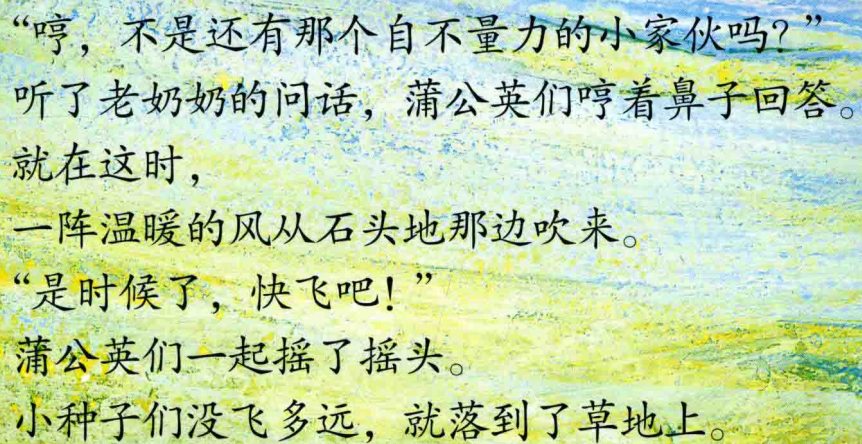 “哼，不是还有那个自不量力的小家伙吗？”
听了老奶奶的问话，蒲公英们哼着鼻子回答。
就在这时，
一阵温暖的风从石头地那边吹来。
“是时候了，快飞吧！”
蒲公英们一起摇了摇头。
小种子们没飞多远，就落到了草地上。